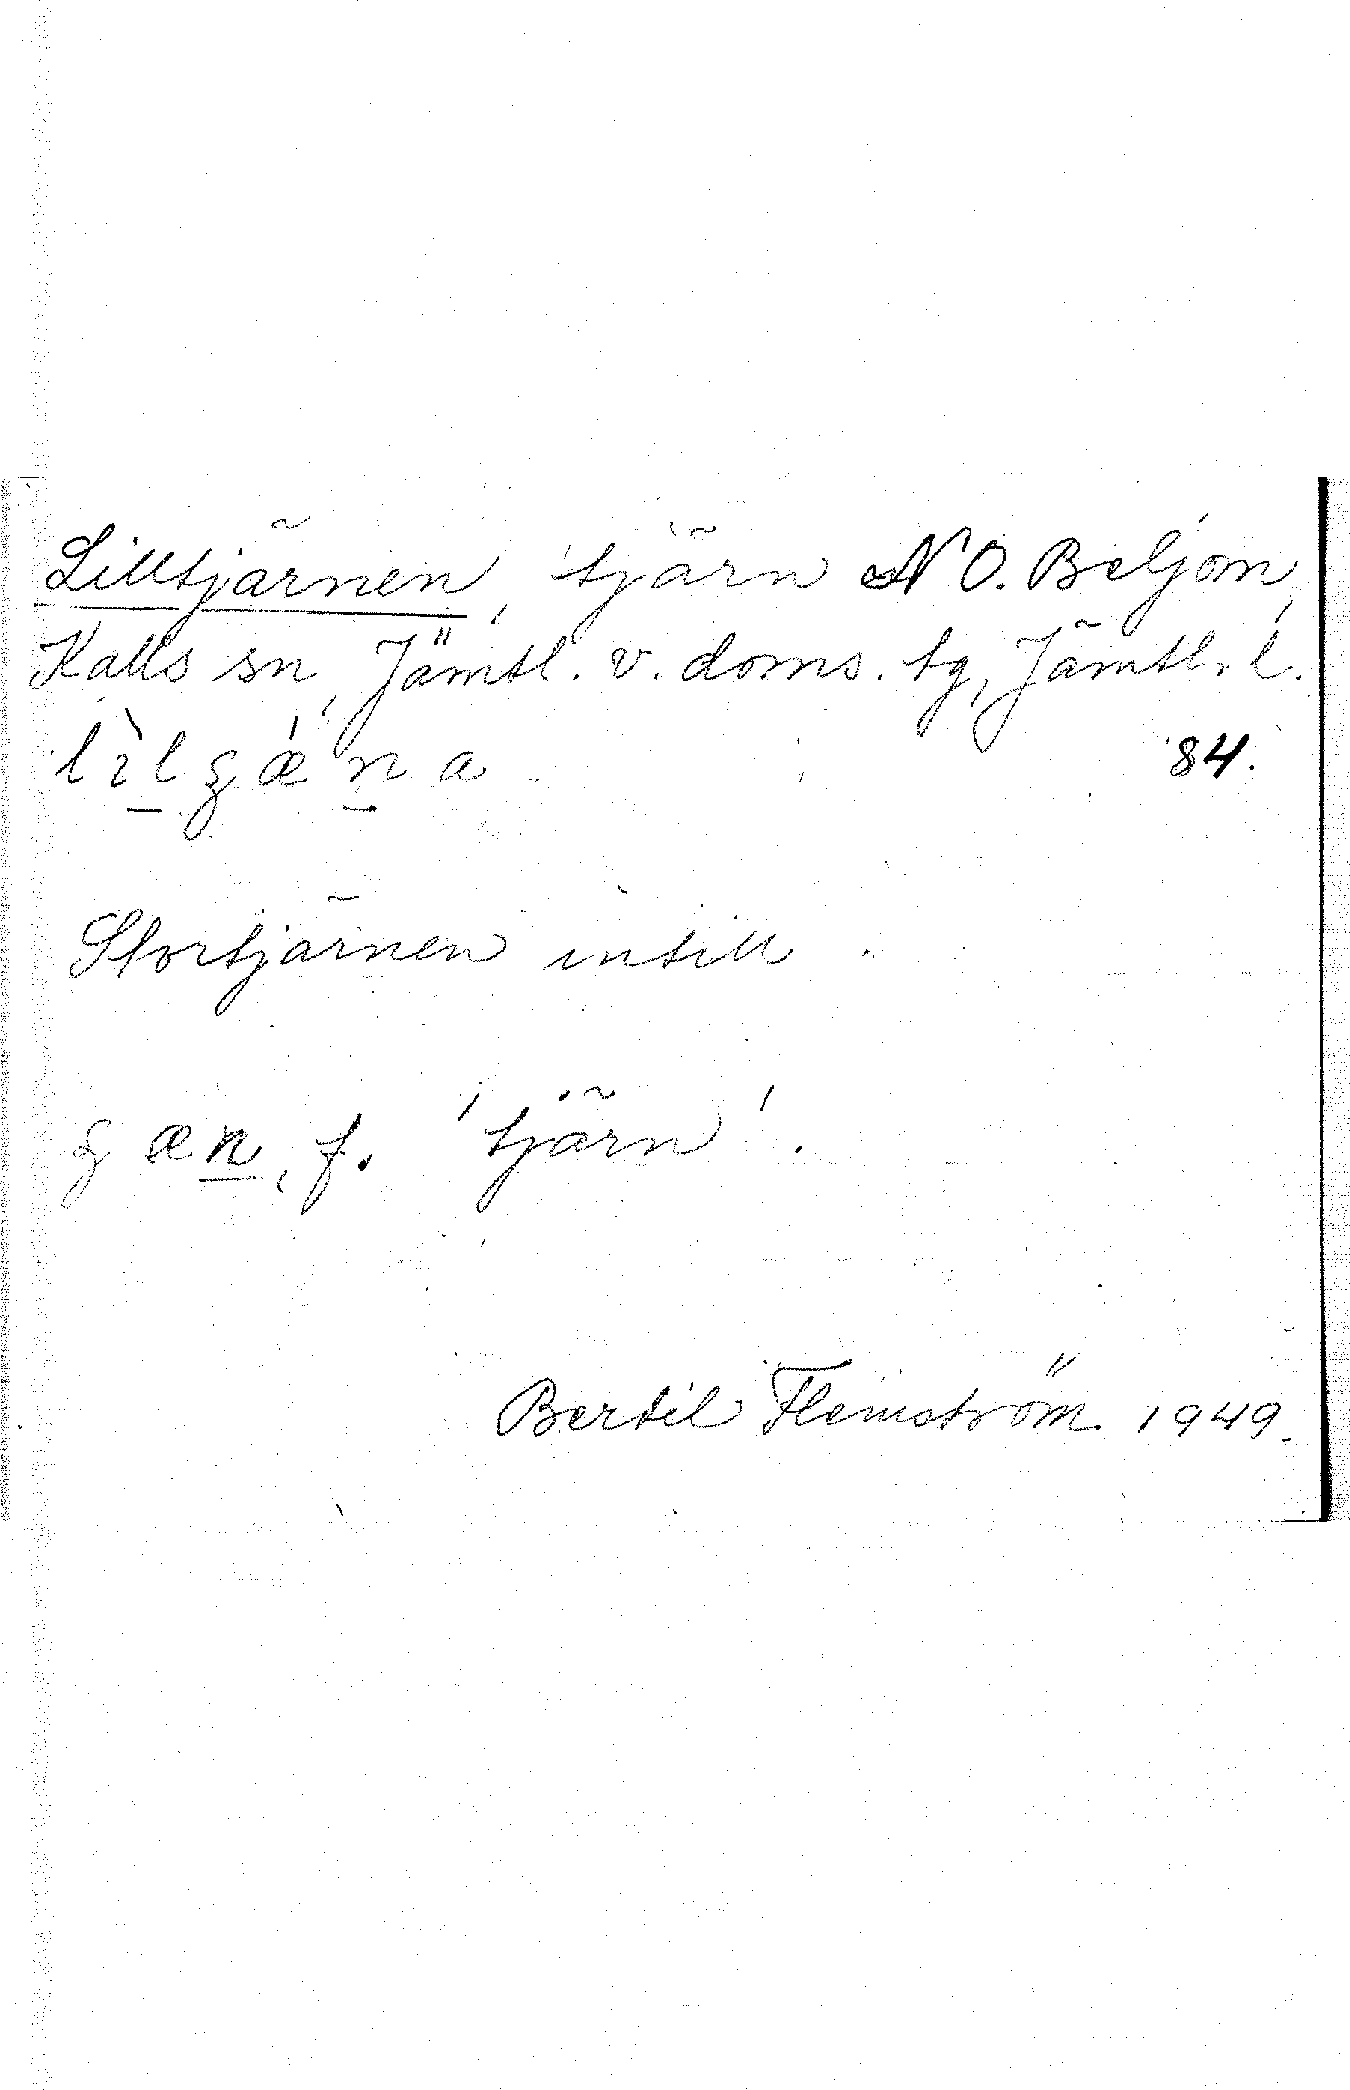 Lilltjärnen, tjärn NO. Beljom,
Kalls sn, Jämtl. v. doms. tg, Jämtl. l.
lìlʂǽna 84.
Stortjärnen intill
ʂæn, f. 'tjärn'.
Bertil Flemström 1949.